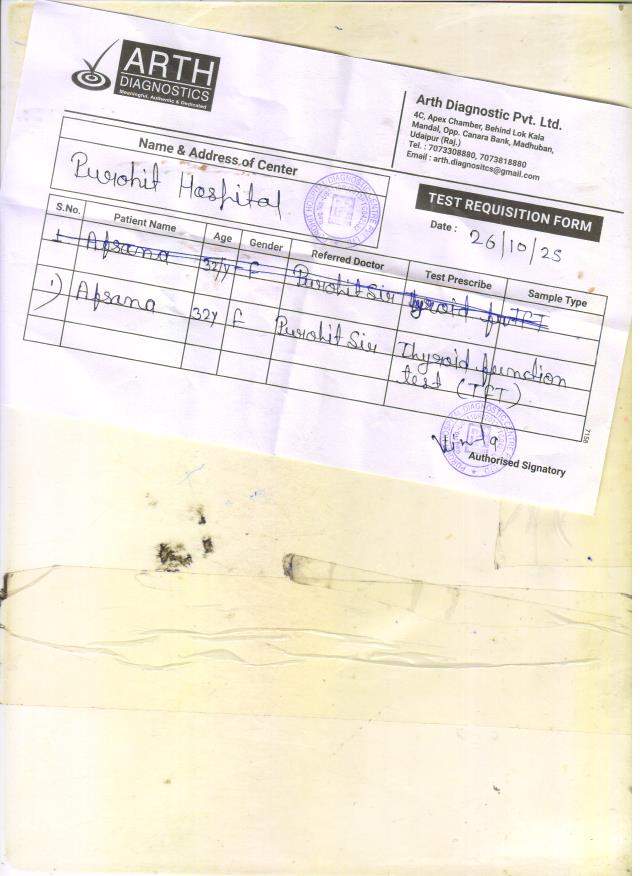 ARTH
DIAGNOSTICS
Meaningful, Authentic & Dedicated
Arth Diagnostic Pvt. Ltd.
4C, Apex Chamber, Behind Lok Kala
Mandal, Opp. Canara Bank, Madhuban,
Udaipur (Raj.)
Tel. : 7073308880, 7073818880
Email : arth.diagnositcs@gmail.com
Name & Address of Center
Purohit Hospital
TEST REQUISITION FORM
Date : 26/10/25
S.No. Patient Name Age Gender Referred Doctor Test Prescribe Sample Type
1- Afsana 32/y F Purohit Sir TFT
1) Afsana 32y F Purohit Sir Thyroid function
test (TFT)
Authorised Signatory
7158